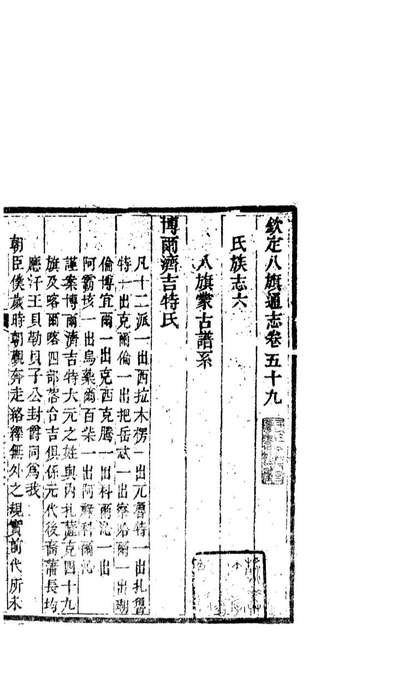 欽定八旗通志卷五十九
氏族志六
八旗蒙古譜系
博爾濟吉特氏
凡十二派一出西拉木楞一出元魯特一出扎魯
特一出克爾倫一出把岳忒一出察哈爾一出瑚
倫博宜爾一出克西克騰一出科爾沁一出
阿霸垓一出烏葉爾百柴一出阿祿科爾沁
謹案博爾濟吉特大元之姓與內扎薩克四十九
旗及喀爾喀四部落台吉俱係元代後裔蕭長均
應汗王貝勒貝子公封爵同為我
朝臣僕歲時朝覲奔走絡繹無外之規實前代所未